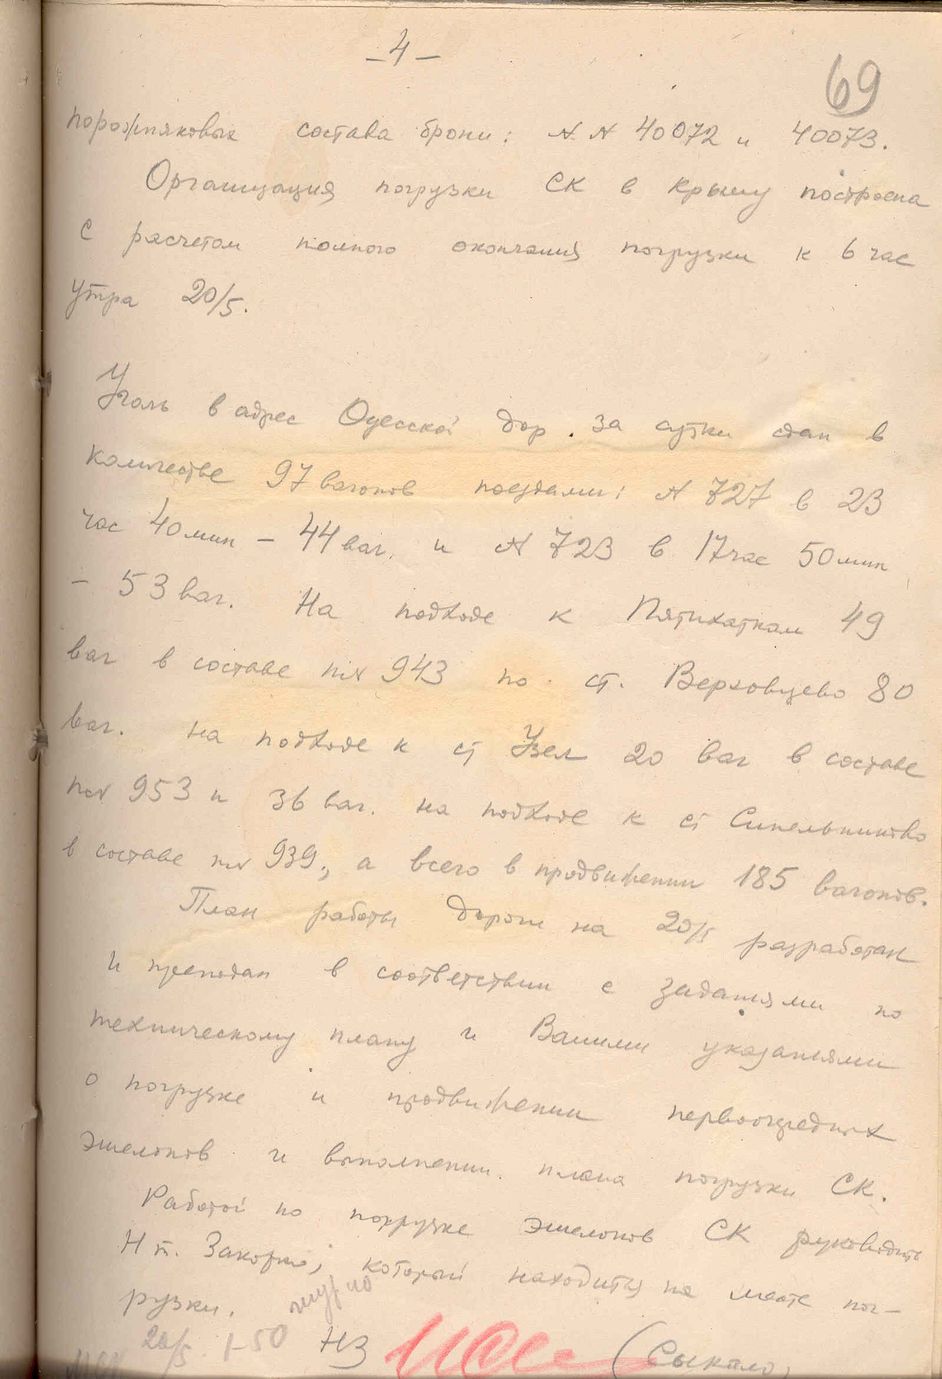 – 4 –
69
порожняковых состава брони: N N 40072 и 40073.
Организация погрузки СК в Крыму построена
с расчетом полного окончания погрузки к 6 час
утра 20/5.
Уголь в адрес Одесской дор. за сутки сдан в
количестве 97 вагонов поездами: N 727 в 23
час 40 мин – 44 ваг. и N 723 в 17 час 50 мин
– 53 ваг. На подходе к Пятихаткам 49
ваг в составе пN 943 по ст. Верховцево 80
ваг. на подходе к ст Узел 20 ваг в составе
пN 953 и 36 ваг. на подходе к ст Синельниково
в составе пN 939., а всего в продвижении 185 вагонов.
План работы дороги на 20/5 разработан
и преподан в соответствии с заданиями по
техническому плану и Вашими указаниями
о погрузке и продвижении первоочередных
эшелонов и выполнении плана погрузки СК.
Работой по погрузке эшелонов СК руководить
Н т. Закорко, который находится на месте пог-
рузки.
20/5 1-50 НЗ